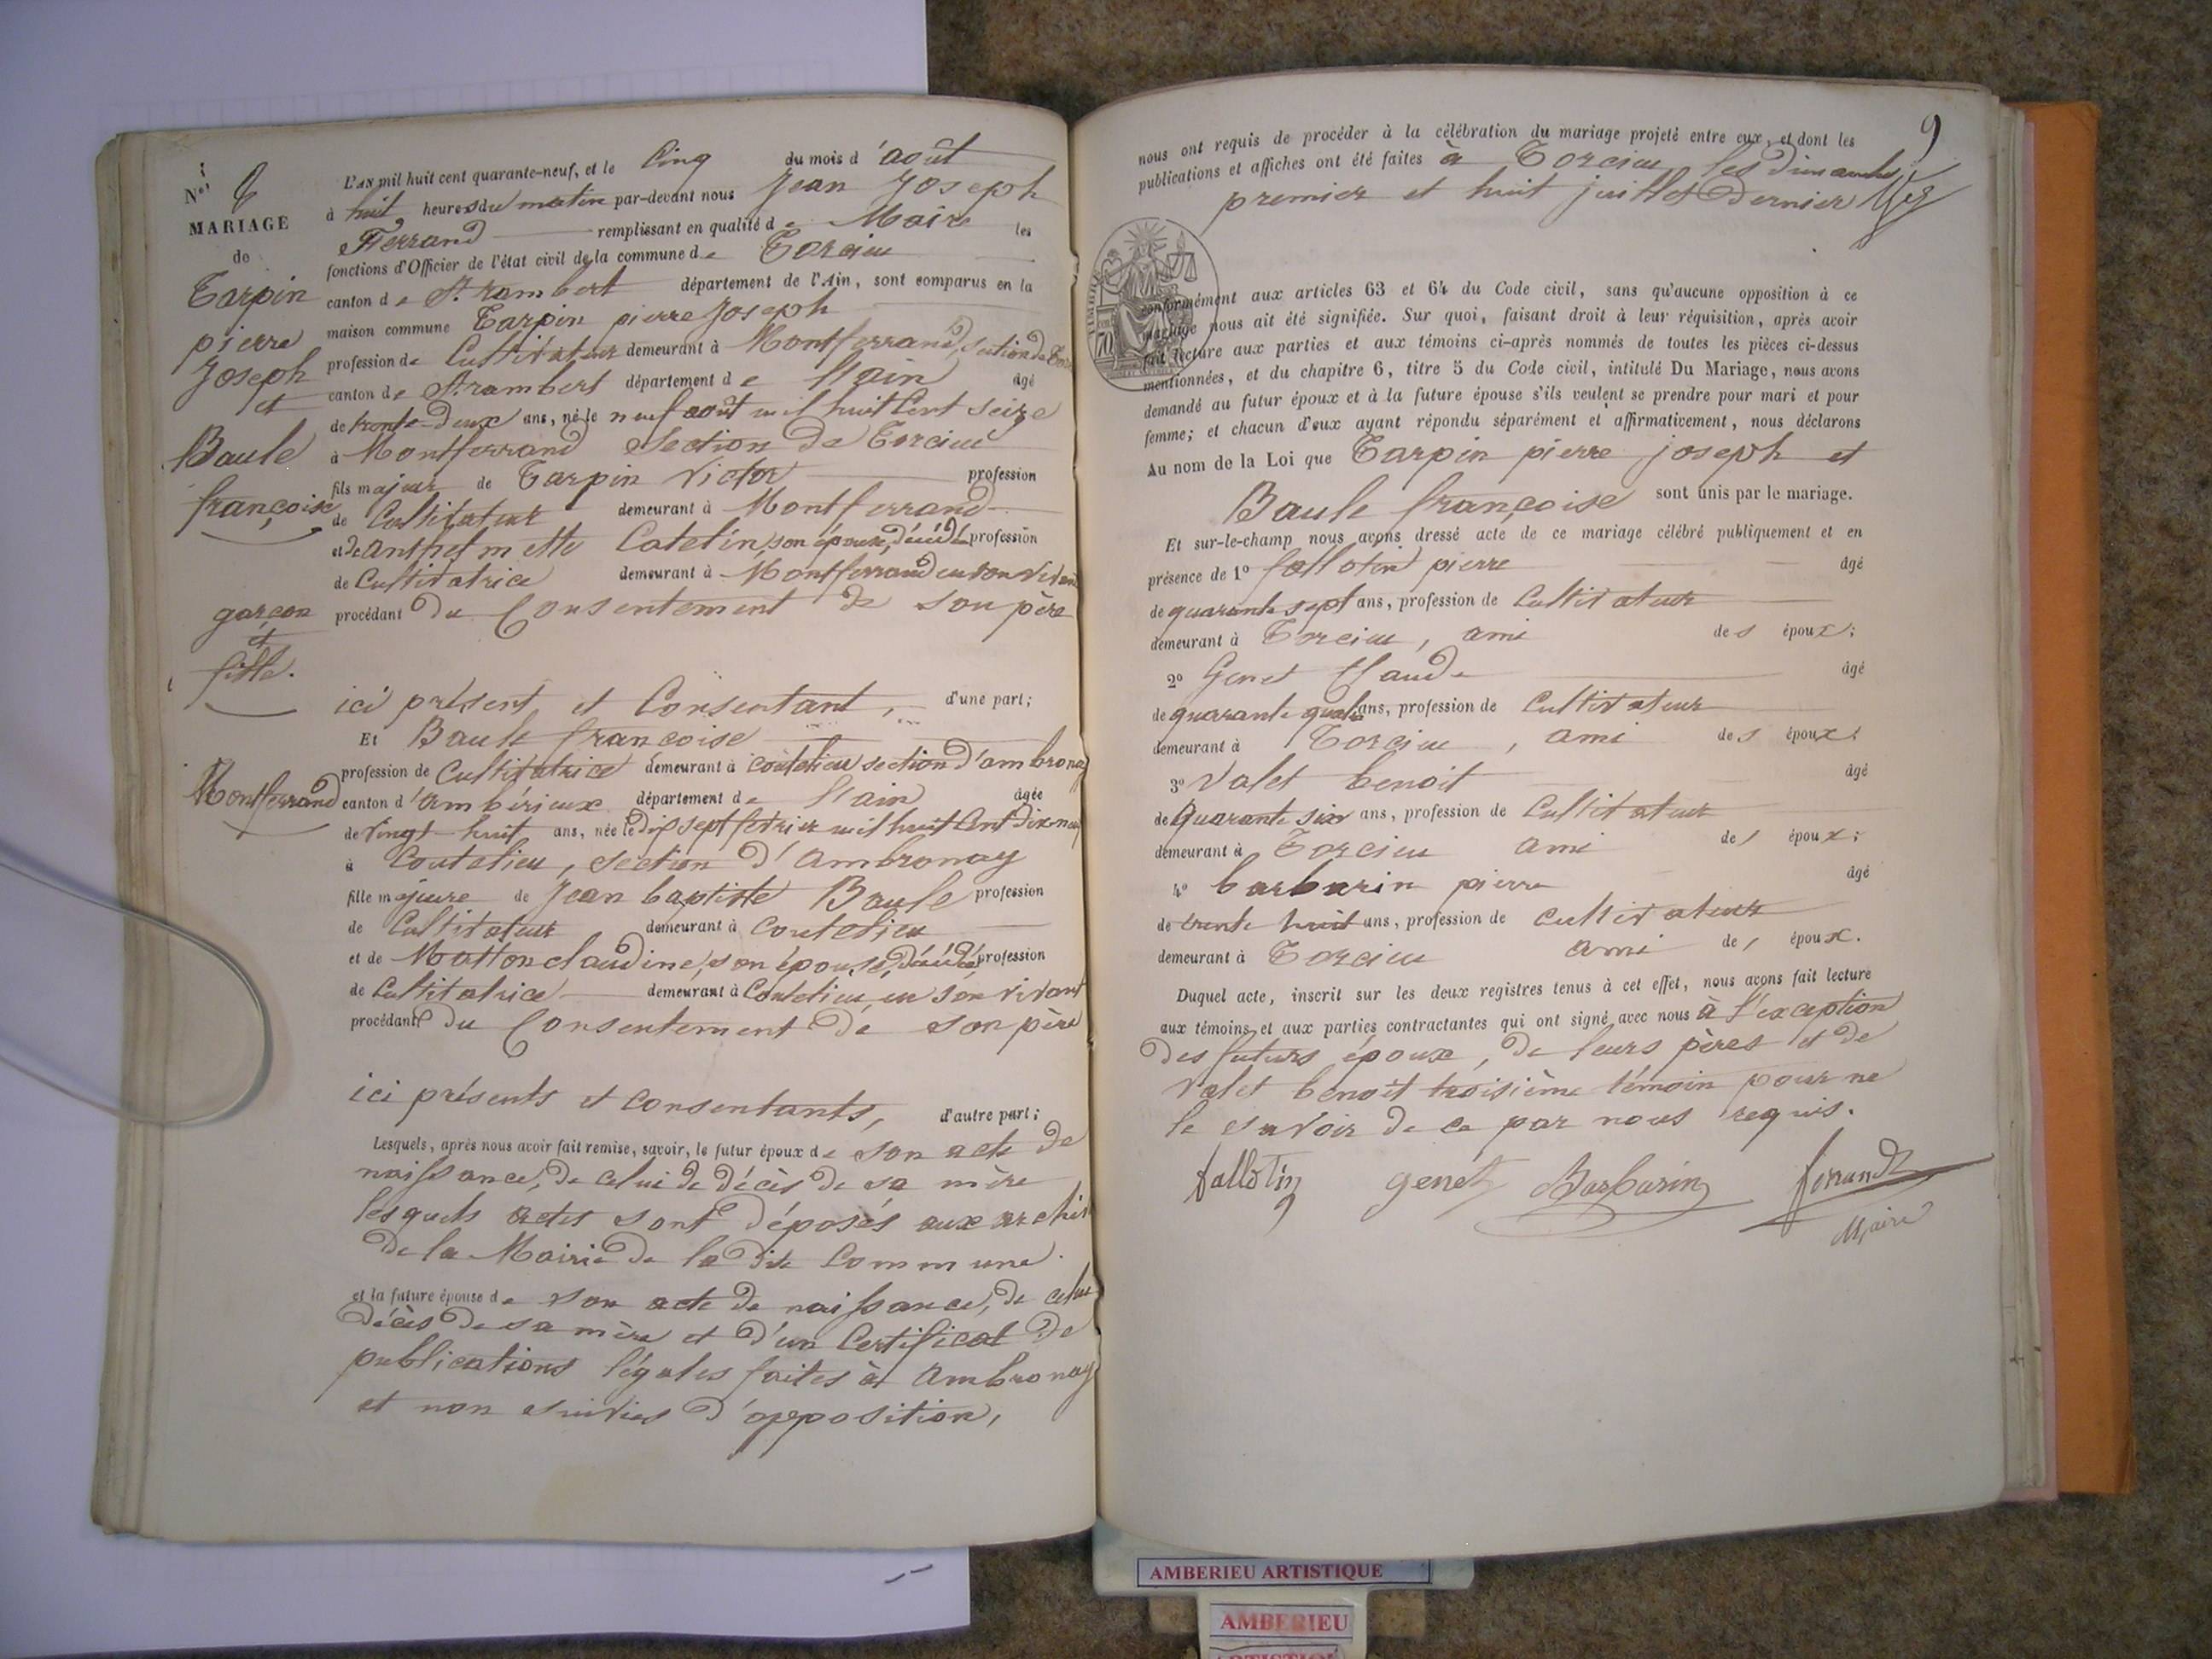 N° 6
MARIAGE
de
Tarpin
pierre
Joseph
et
Baule
françoise
garçon
et
fille.
Montferrand
L'AN mil huit cent quarante-neuf, et le Cinq du mois d'août
à huit heures du matin par-devant nous Jean Joseph
Ferrand remplissant en qualité de Maire les
fonctions d'Officier de l'état civil de la commune de Torcieu
canton de St. rambert département de l'Ain, sont comparus en la
maison commune Tarpin pierre Joseph
profession de Cultivateur demeurant à Montferrand, section de
canton de St. rambert département de l'ain âgé
de trente-deux ans, né le neuf août mil huit Cent seize
à Montferrand section de Torcieu
fils majeur de Tarpin Victor profession
de Cultivateur demeurant à Montferrand
et de anthelmette Catelin, son épouse, décédée profession
de Cultivatrice demeurant à Montferrand en son vivant
procédant du Consentement de son père
ici présent et Consentant, d'une part;
Et Baule françoise
profession de Cultivatrice demeurant à coutelieu section d'ambronay
canton d'ambérieux département de l'ain âgée
de vingt-huit ans, née le dix sept fevrier mil huit Cent dix-neuf
à Coutelieu, section d'ambronay
fille majeure de Jean baptiste Baule profession
de Cultivateur demeurant à Coutelieu
et de Matton claudine, son épouse, décédée, profession
de Cultivatrice demeurant à Coutelieu en son vivant
procédant du Consentement de son père
ici présents et consentants, d'autre part;
Lesquels, après nous avoir fait remise, savoir, le futur époux de son acte de
naissance, de celui de décès de sa mère
lesquels actes sont déposés aux archiv
de la Mairie de la dite Commune.
et la future épouse de son acte de naissance, de celui
décès de sa mère et d'un Certificat de
publications légales faites à Ambronay
et non suivies d'opposition,
9
nous ont requis de procéder à la célébration du mariage projeté entre eux, et dont les
publications et affiches ont été faites à Torcieu les dimanches
premier et huit juillet dernier
conformément aux articles 63 et 64 du Code civil, sans qu'aucune opposition à ce
mariage nous ait été signifiée. Sur quoi, faisant droit à leur réquisition, après avoir
fait lecture aux parties et aux témoins ci-après nommés de toutes les pièces ci-dessus
mentionnées, et du chapitre 6, titre 5 du Code civil, intitulé Du Mariage, nous avons
demandé au futur époux et à la future épouse s'ils veulent se prendre pour mari et pour
femme; et chacun d'eux ayant répondu séparément et affirmativement, nous déclarons
Au nom de la Loi que Tarpin pierre joseph et
Baule françoise sont unis par le mariage.
Et sur-le-champ nous avons dressé acte de ce mariage célébré publiquement et en
présence de 1° fallotin pierre âgé
de quarante sept ans, profession de Cultivateur
demeurant à Torcieu, ami des époux;
2° Genet Claude âgé
de quarante quatre ans, profession de Cultivateur
demeurant à Torcieu, ami des époux;
3° Valet benoit âgé
de quarante six ans, profession de Cultivateur
demeurant à Torcieu ami des époux;
4° barbarin pierre âgé
de trente huit ans, profession de Cultivateur
demeurant à Torcieu ami des époux.
Duquel acte, inscrit sur les deux registres tenus à cet effet, nous avons fait lecture
aux témoins et aux parties contractantes qui ont signé avec nous à l'exception
des futurs époux, de leurs pères et de
Valet benoit troisième témoin pour ne
le savoir de ce par nous requis.
fallotin genet Barbarin ferrand
Maire
AMBERIEU ARTISTIQUE
AMBERIEU
ARTISTIQUE